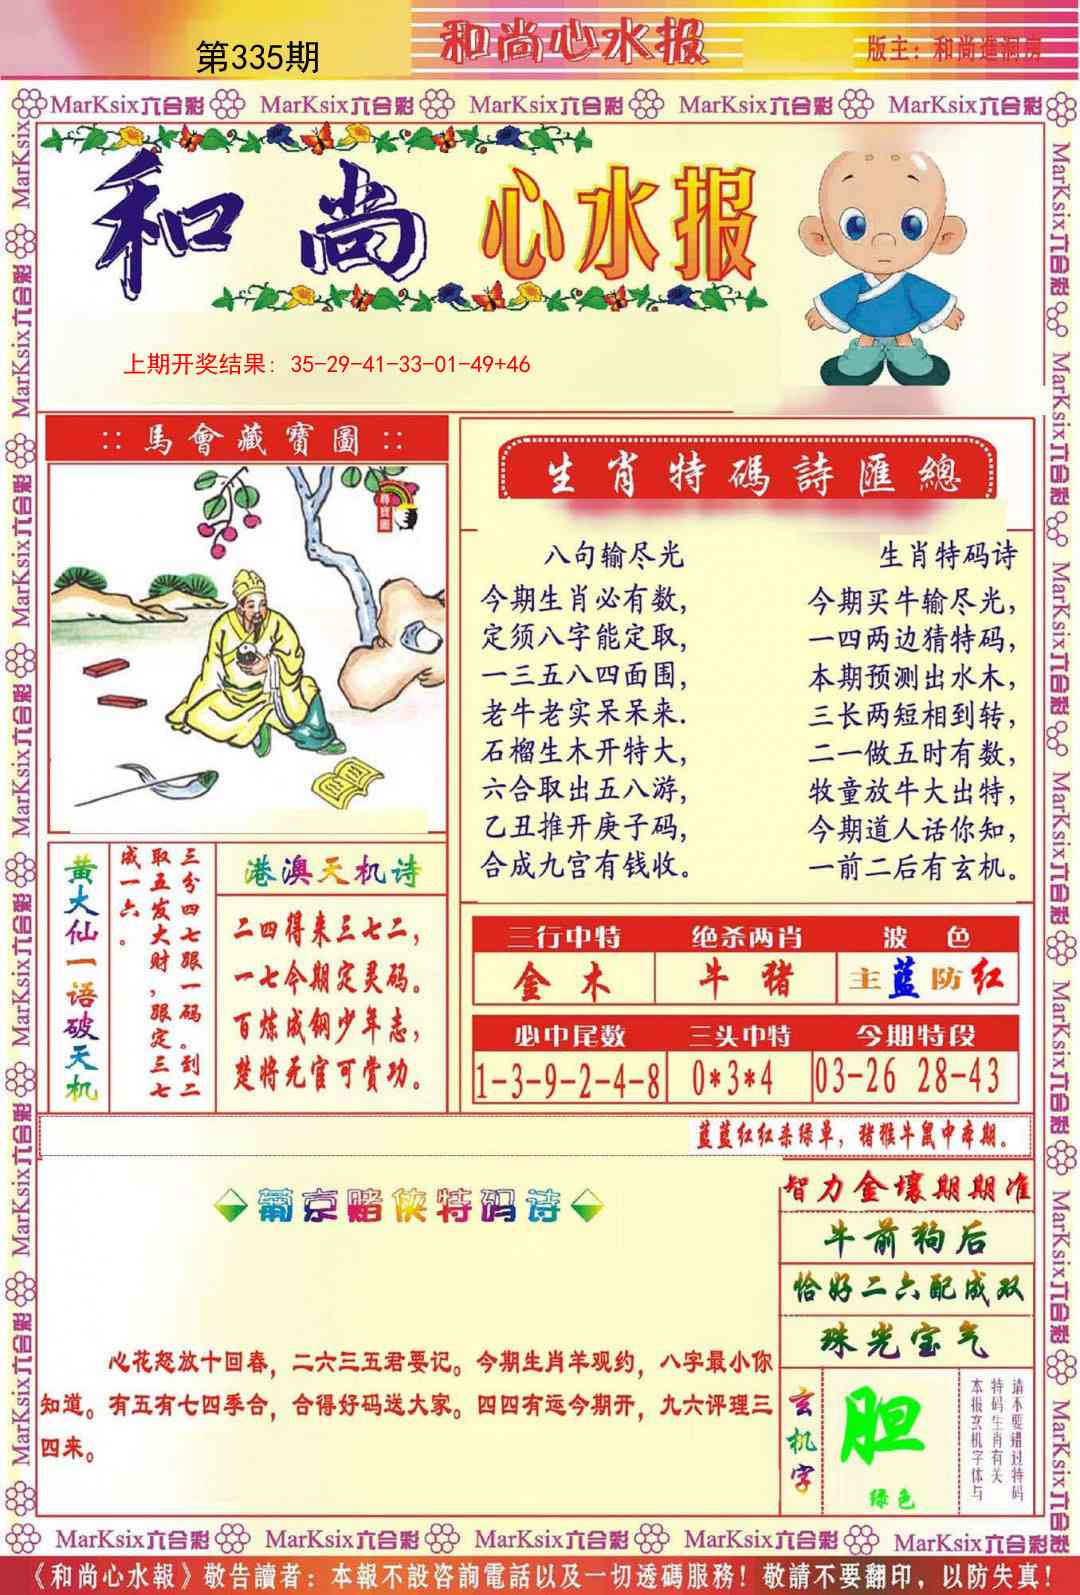 第335期
和尚心水报
版主：和尚進洞房
MarKsix六合彩 MarKsix六合彩 MarKsix六合彩 MarKsix六合彩 MarKsix六合彩
和尚心水报
上期开奖结果：35-29-41-33-01-49+46
:: 馬會藏寶圖 ::
尋寶圖
生肖特碼詩匯總
八句输尽光
今期生肖必有数，
定须八字能定取，
一三五八四面围，
老牛老实呆呆来.
石榴生木开特大，
六合取出五八游，
乙丑推开庚子码，
合成九宫有钱收。
生肖特码诗
今期买牛输尽光，
一四两边猜特码，
本期预测出水木，
三长两短相到转，
二一做五时有数，
牧童放牛大出特，
今期道人话你知，
一前二后有玄机。
黄大仙一语破天机
三分四七跟一码。到二
取五发大财，跟定三七
成一六。
港澳天机诗
二四得来三七二，
一七今期定灵码。
百炼成钢少年志，
楚将无官可赏功。
三行中特 绝杀两肖 波色
金木 牛猪 主蓝防红
必中尾数 三头中特 今期特段
1-3-9-2-4-8 0*3*4 03-26 28-43
蓝蓝红红杀绿单，猪猴牛鼠中本期。
葡京赌侠特码诗
心花怒放十回春，二六三五君要记。今期生肖羊观约，八字最小你
知道。有五有七四季合，合得好码送大家。四四有运今期开，九六评理三
四来。
智力金壤期期准
牛前狗后
恰好二六配成双
珠光宝气
玄机字
胆
绿色
请不要错过特码
特码生肖有关
本报玄机字体与
MarKsix六合彩 MarKsix六合彩 MarKsix六合彩 MarKsix六合彩 MarKsix六合彩
《和尚心水報》敬告讀者：本報不設咨詢電話以及一切透碼服務！敬請不要翻印，以防失真！